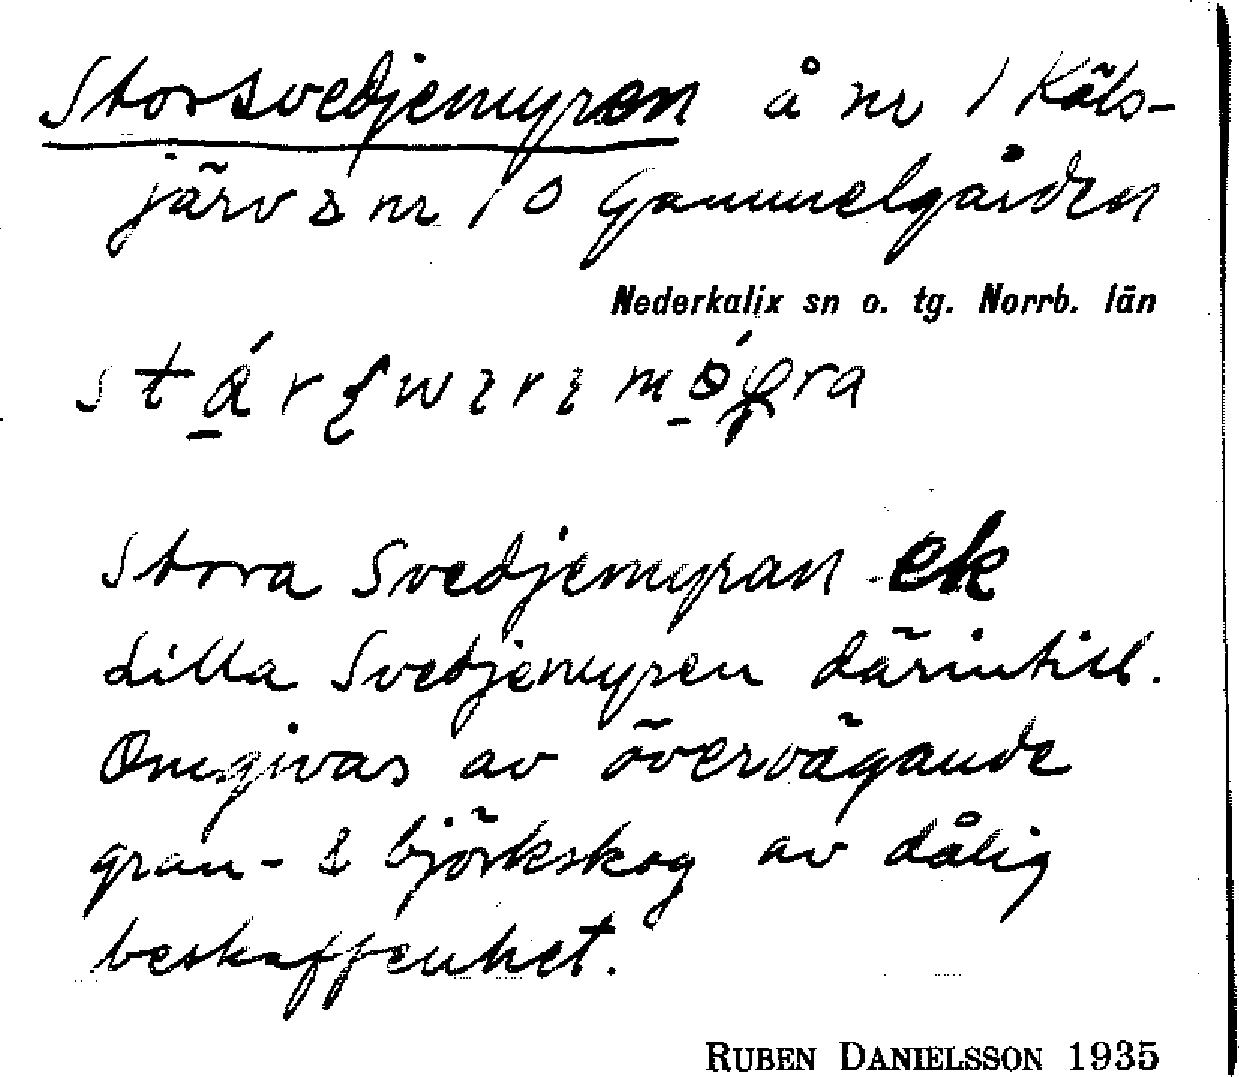 Storsvedjemyren å nr 1 Käls-
järv & nr 10 Gammelgården
Nederkalix sn o. tg. Norrb. län
Stora Svedjemyran ek
Lilla Svedjemyren därintill.
Omgivas av övervägande
gran- & björkskog av dålig
beskaffenhet.
RUBEN DANIELSSON 1935